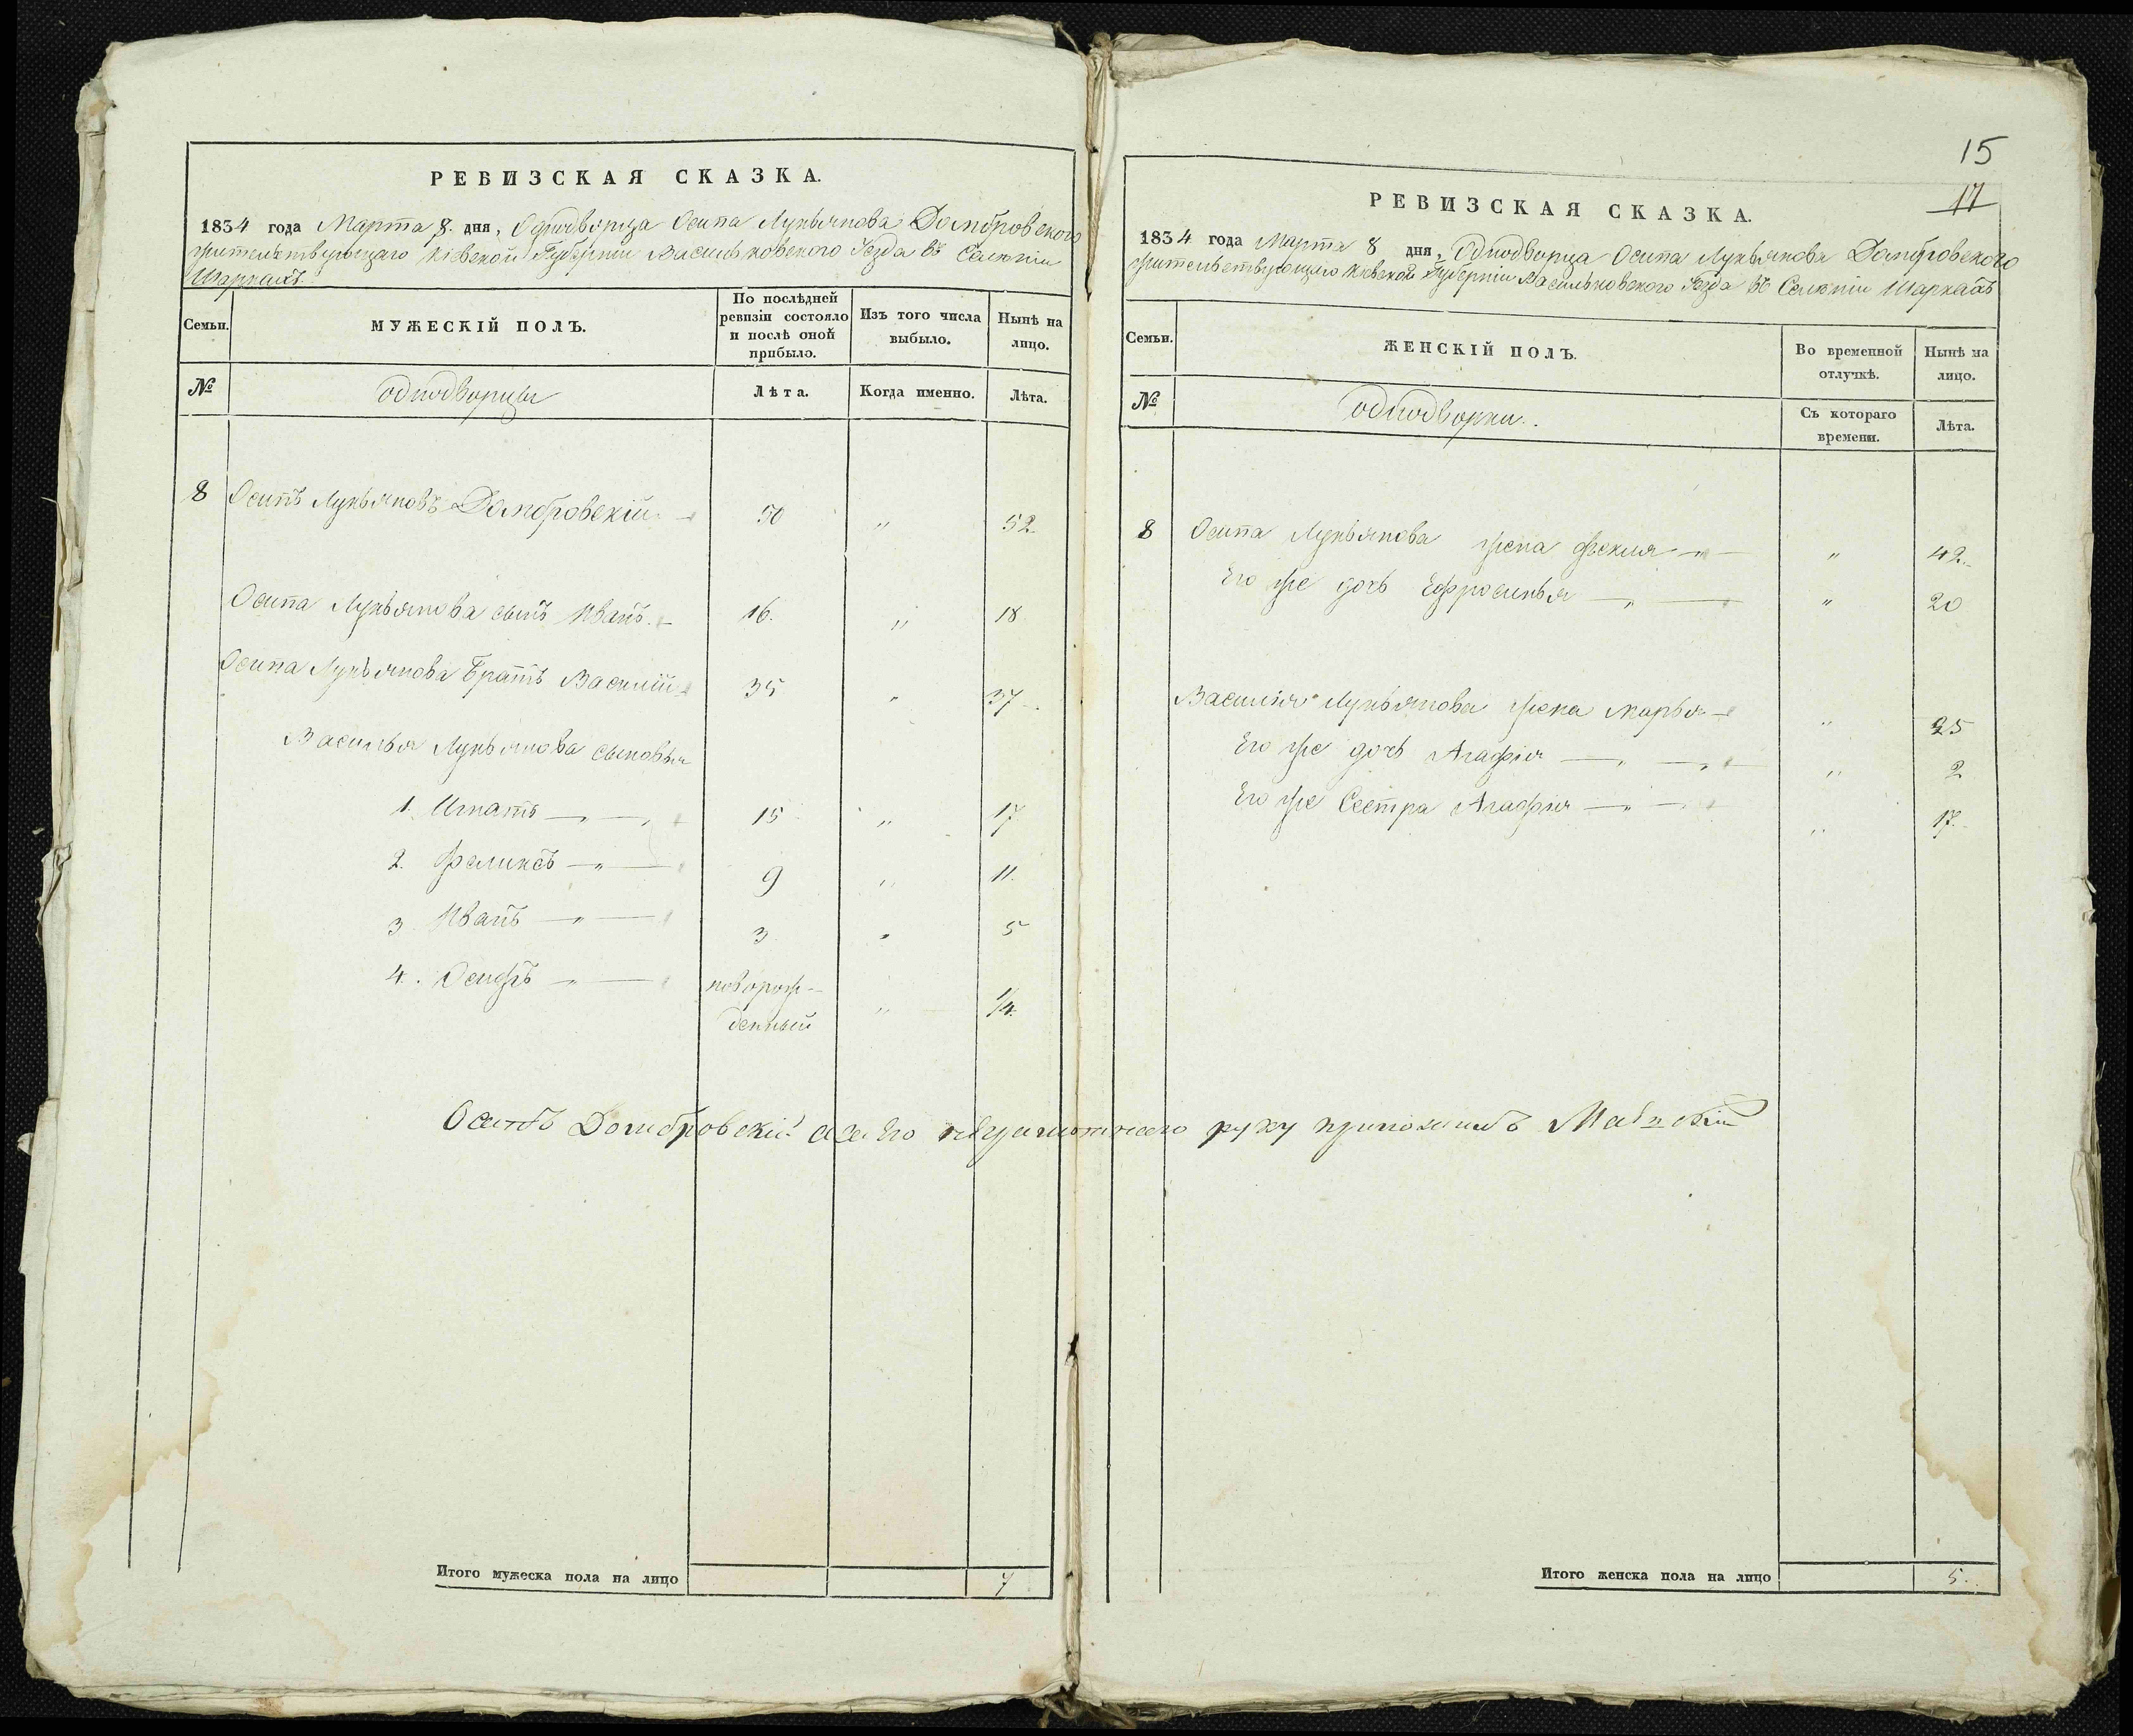 РЕВИЗСКАЯ СКАЗКА.
1834 года Марта 8. дня, Однодворца Осипа Лукьянова Домбровского
жительствующаго Кіевской Губерніи Васильковского Уезда въ Селеніи
Шарках
Семьи.
МУЖЕСКІЙ ПОЛЪ.
По послѣдней
ревизіи состояло
и послѣ оной
прибыло.
Изъ того числа
выбыло.
Нынѣ на
лицо.
№
однодворцы
Лѣта.
Когда именно.
Лѣта.
8 Осипъ Лукьяновъ Домбровскій 50 " 52
Осипа Лукьянова сынъ Иванъ 16. " 18
Осипа Лукьянова братъ Василій 35 " 37
Василья Лукьянова сыновья
1. Игнатъ 15 " 17
2. Феликсъ 9 " 11.
3 Иванъ 3 " 5
4. Осифъ новорож-
денный " 1/4.
Осипъ Домбровскій а за Его неграмотнаго руку приложилъ
Итого мужеска пола на лицо 7
15
17
РЕВИЗСКАЯ СКАЗКА.
1834 года Марта 8 дня, Однодворца Осипа Лукьянова Домбровского
жительствующаго Кіевской Губерніи Васильковского Уезда въ Селеніи Шаркахъ
Семьи.
ЖЕНСКІЙ ПОЛЪ.
Во временной
отлучкѣ.
Нынѣ на
лицо.
№
однодворки.
Съ котораго
времени.
Лѣта.
8 Осипа Лукьянова жена Фекла " 42
Его же дочь Ефросинья " 20
Василія Лукьянова жена Марья " 25
Его же дочь Агафія " 2
Его же Сестра Агафія " 17
Итого женска пола на лицо 5